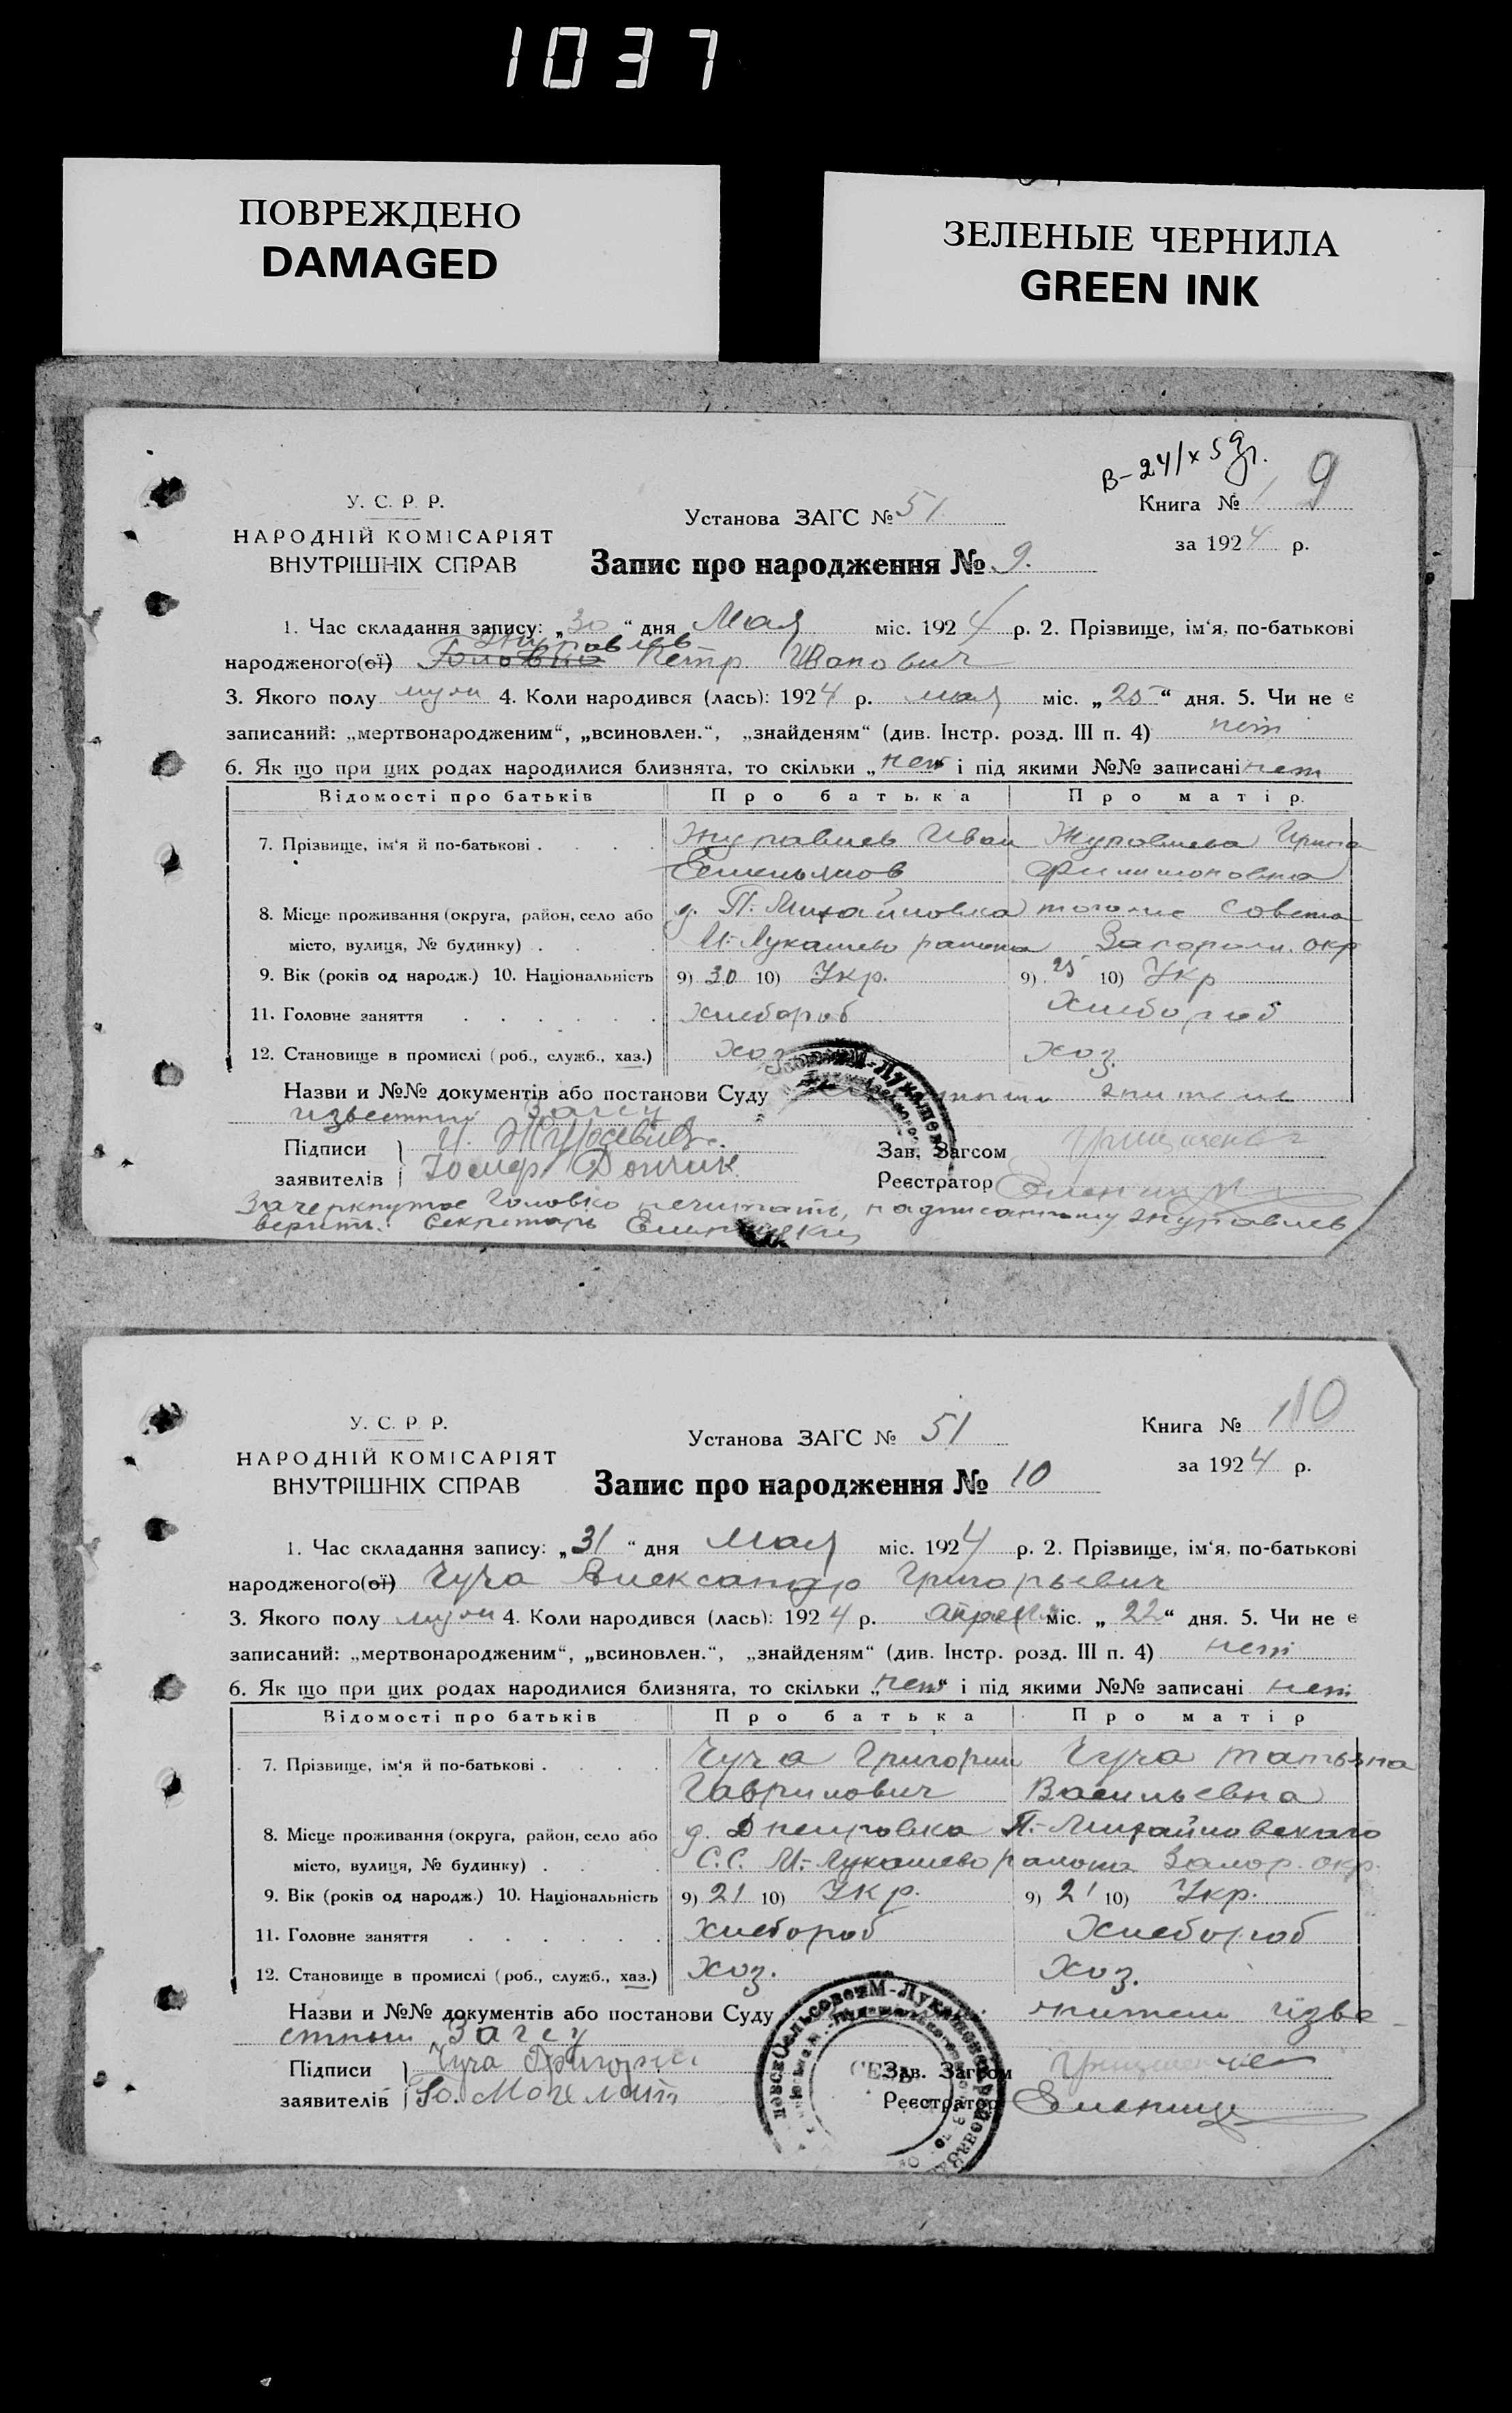 1037
ПОВРЕЖДЕНО
DAMAGED
ЗЕЛЕНЫЕ ЧЕРНИЛА
GREEN INK
В-24/х 59г.
У. С. Р. Р.
НАРОДНІЙ КОМІСАРІЯТ
ВНУТРІШНІХ СПРАВ
Установа ЗАГС № 51
Запис про народження № 9.
Книга № 9
за 1924 р.
1. Час складання запису: „30“ дня Мая міс. 1924 р. 2. Прізвище, ім‘я, по-батькові
Журавлев
народженого(ої) Головко Петр Иванович
3. Якого полу муж 4. Коли народився (лась): 1924 р. мая міс. „25“ дня. 5. Чи не є
записаний: „мертвонародженим“, „всиновлен.“, „знайденям“ (див. Інстр. розд. III п. 4) нет
6. Як що при цих родах народилися близнята, то скільки „нет“ і під якими №№ записані нет
Відомості про батьків Про батька Про матір.
7. Прізвище, ім‘я й по-батькові . . . . Журавлев Иван Журавлева Ирина
Емельянов Филимоновна
8. Місце проживання (округа, район, село або д. П.-Михайловка того же совета
місто, вулиця, № будинку) . . М-Лукашево района Запорож. окр
9. Вік (років од народж.) 10. Національність 9) 30 10) Укр. 9) 25 10) Укр
11. Головне заняття . . . . . . Хлебороб Хлебороб
12. Становище в промислі (роб., служб., хаз.) хоз хоз.
Назви и №№ документів або постанови Суду жители
известный Загсу
Підписи И. Журавлев Зав. Загсом
заявителів Иосиф Реєстратор
Зачеркнутое Головко нечитать, надписанному журавлев
верить. Секретарь
У. С. Р. Р.
НАРОДНІЙ КОМІСАРІЯТ
ВНУТРІШНІХ СПРАВ
Установа ЗАГС № 51
Запис про народження № 10
Книга № 10
за 1924 р.
1. Час складання запису: „31“ дня Мая міс. 1924 р. 2. Прізвище, ім‘я, по-батькові
народженого(ої) Чуча Александр Григорьевич
3. Якого полу муж 4. Коли народився (лась): 1924 р. Апреля міс. „22“ дня. 5. Чи не є
записаний: „мертвонародженим“, „всиновлен.“, „знайденям“ (див. Інстр. розд. III п. 4) нет
6. Як що при цих родах народилися близнята, то скільки „нет“ і під якими №№ записані нет
Відомості про батьків Про батька Про матір
7. Прізвище, ім‘я й по-батькові . . . . Чуча Григорий Чуча Татьяна
Гаврилович Васильевна
8. Місце проживання (округа, район, село або д. Днепровка П.-Михайловского
місто, вулиця, № будинку) . . С.С. М-Лукашево района Запор. окр.
9. Вік (років од народж.) 10. Національність 9) 21 10) Укр. 9) 21 10) Укр.
11. Головне заняття . . . . . . Хлебороб Хлебороб
12. Становище в промислі (роб., служб., хаз.) Хоз. Хоз.
Назви и №№ документів або постанови Суду жители изве-
стный Загсу
Підписи Чуча Григорий Зав. Загсом
заявителів Реєстратор